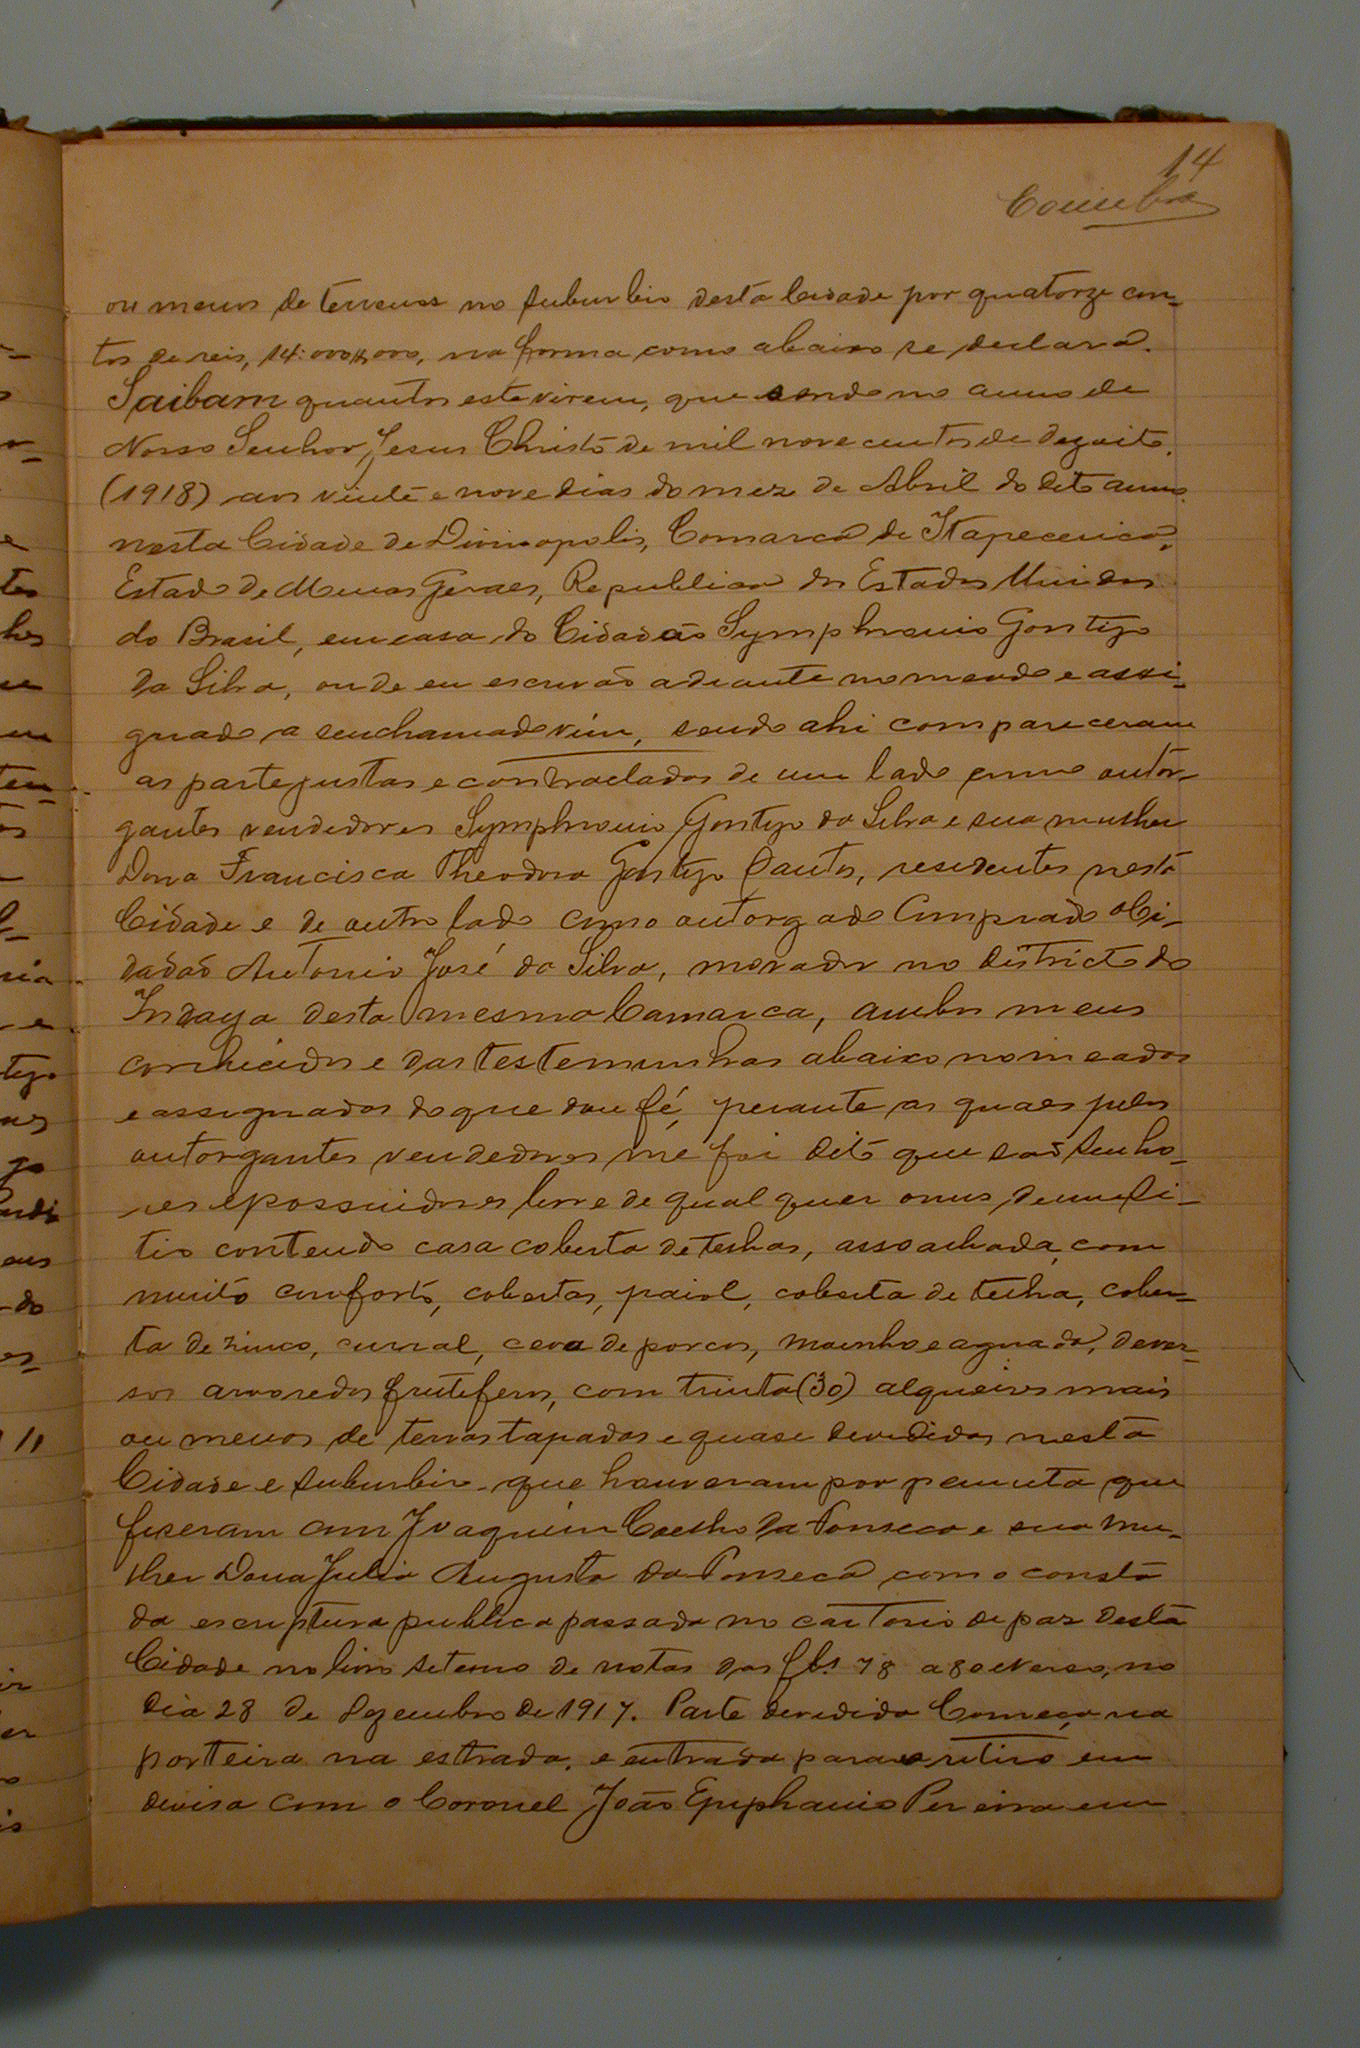 14
Coimbra
ou menos de terrenos no suburbio desta Cidade por quatorze con-
tos de reis, 14:000$000, na forma como abaixo se declara.
Saibam quantos este virem, que sendo no anno de
Nosso Senhor Jesus Christo de mil nove centos de dezoito,
(1918) aos vinte e nove dias do mez de Abril do dito anno
nesta Cidade de Divinopolis, Comarca de Itapecerica,
Estado de Minas Geraes, Republica dos Estados Unidos
do Brasil, em casa do Cidadão Symphronio Gontijo
da Silva, onde eu escrivão adeante nomeado e assi-
gnado a seu chamado vim, sendo ahi compareceram
as partes justas e contractadas de um lado como outor-
gantes vendedores Symphronio Gontijo da Silva e sua mulher
Dona Francisca Theodora Gontijo Santos, residentes nesta
Cidade e de outro lado como outorgado Comprado o Ci-
dadão Antonio José da Silva, morador no districto do
Indaya desta mesma Comarca, ambos meus
conhecidos e das testemunhas abaixo nomeadas
e assignados do que dou fé, perante as quaes pelos
outorgantes vendedores me foi dito que são senho-
res e possuidores livre de qual quer onus de um si-
tio contendo casa coberta de telhas, assoalhada, com
muito conforto, cobertas, paiol, coberta de telha, cober-
ta de zinco, curral, ceva de porcos, moinho e aguada, dever-
sos arvoredos frutiferos, com trinta (30) alqueires mais
ou menos de terras tapadas e quase devididas nesta
Cidade e suburbio que houveram por permuta que
fizeram com Joaquim Coelho da Fonseca e sua mu-
lher Dona Julia Augusta da Fonseca como consta
da escriptura publica passada no cartorio de paz desta
Cidade no livro setemo de notas das fls. 78 a 80 e verso, no
dia 28 de Dezembro de 1917. Parte devidida Começa na
porteira na estrada, e entrada para o retiro em
devisa com o Coronel João Epiphanio Pereira em